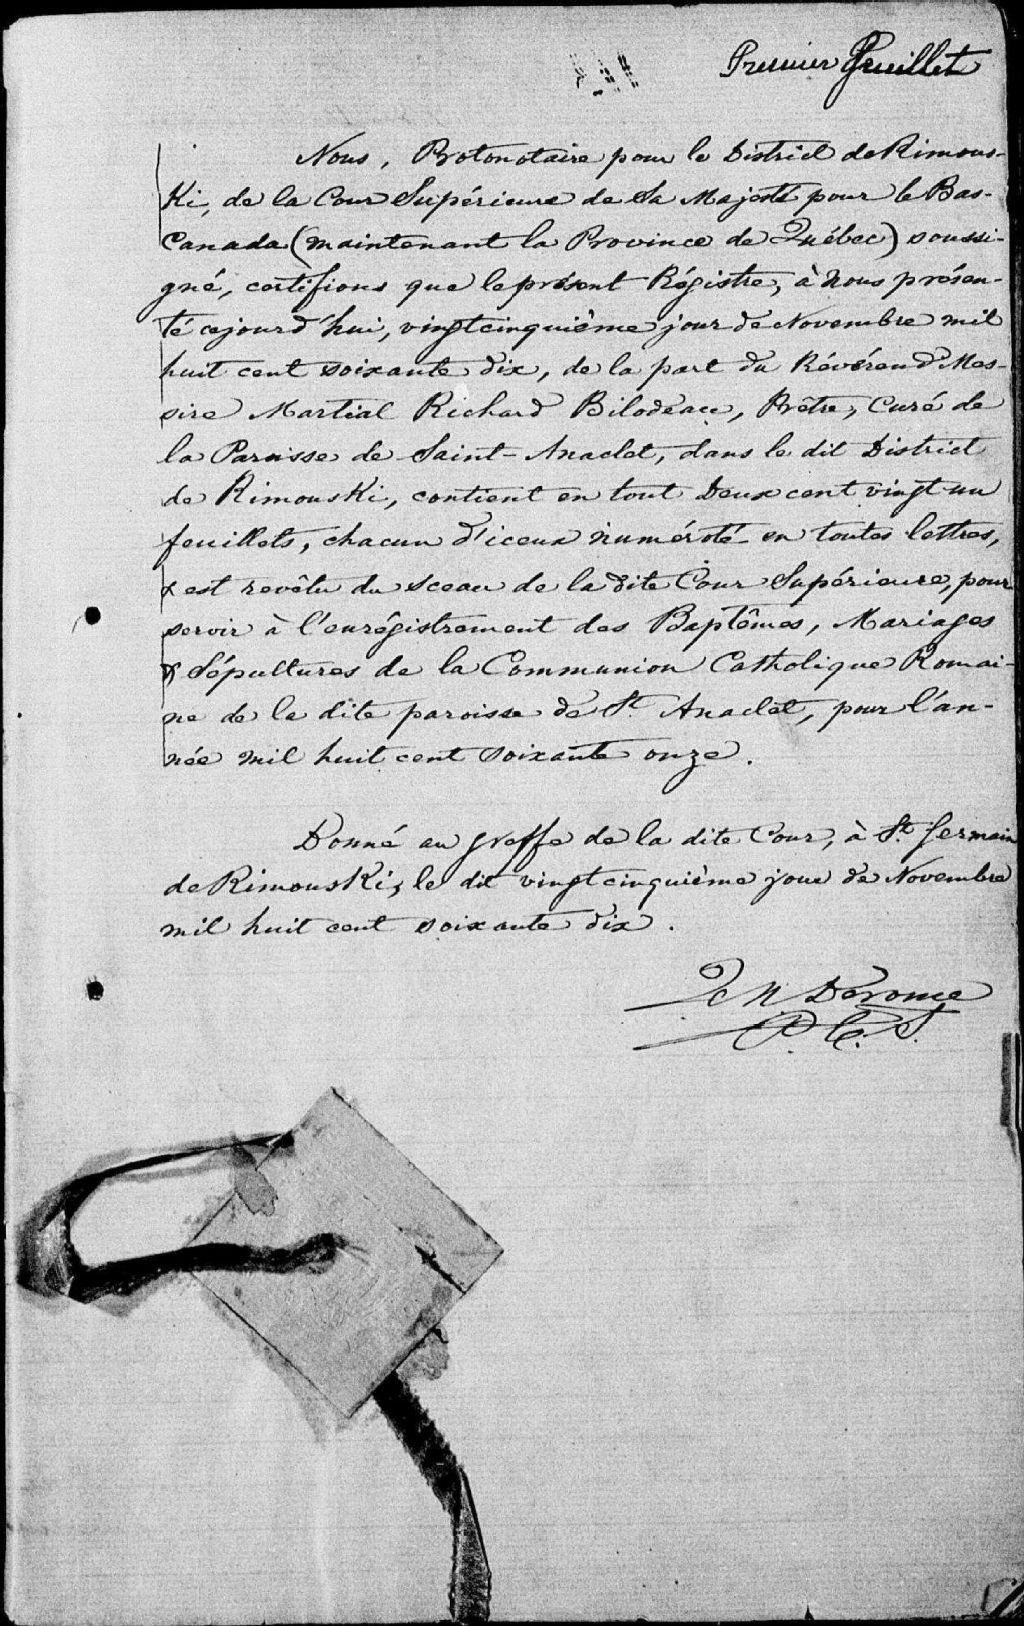 Premier feuillet
Nous, Protonotaire pour le District de Rimous-
Ki, de la Cour Supérieure de Sa Majesté pour le Bas-
Canada (maintenant la Province de Québec) soussi-
gné, certifions que le présent Régistre, à nous présen-
té cejourd'hui, vingtcinquième jour de Novembre mil
huit cent soixante dix, de la part du Révérend Mes-
sire Martial Richard Bilodeau, Prêtre, Curé de
la Paroisse de Saint-Anaclet, dans le dit District
de Rimouski, contient en tout Deux cent vingt un
feuillets, chacun d'iceux numéroté en toutes lettres,
& est revêtu du sceau de la dite Cour Supérieure, pour
servir à l'enrégistrement des Baptêmes, Mariages
& Sépultures de la Communion Catholique Romai-
ne de la dite paroisse de St. Anaclet, pour l'an-
née mil huit cent soixante onze.
Donné au greffe de la dite Cour, à St. Germain
de Rimouski, le dit vingtcinquième jour de Novembre
mil huit cent soixante dix.
Derome
P. C. S.